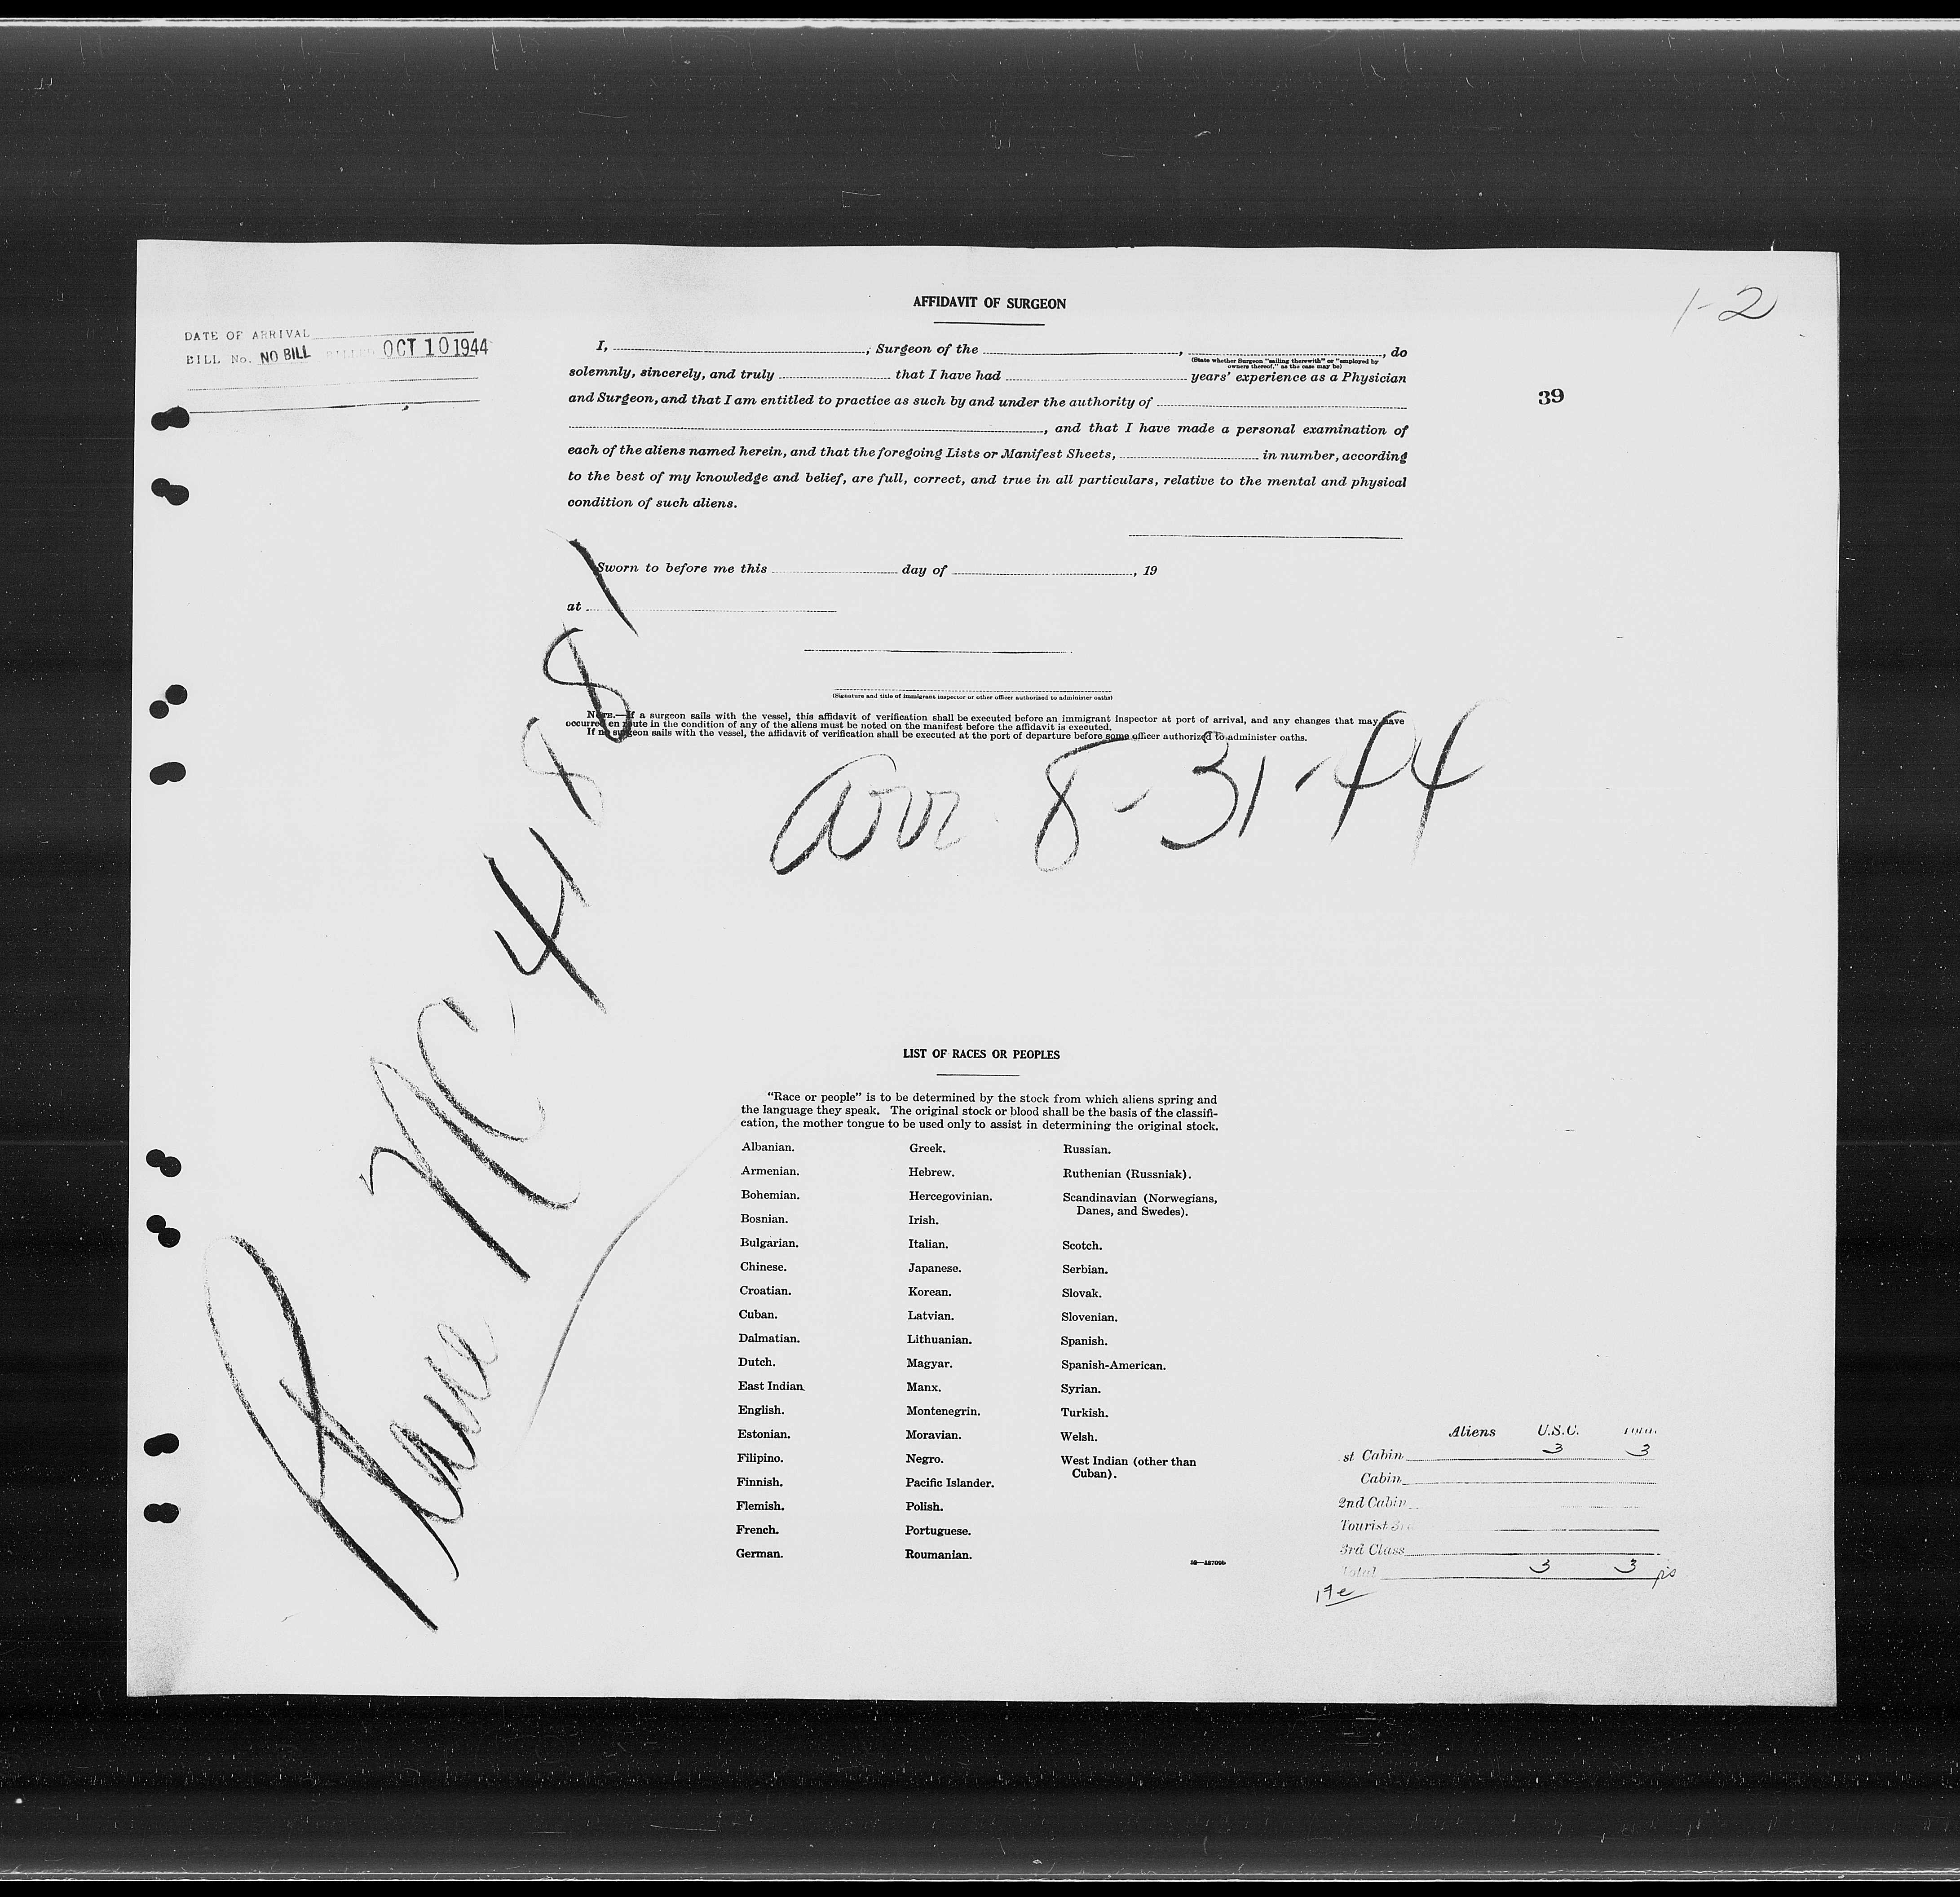 AFFIDAVIT OF SURGEON
1-2
DATE OF ARRIVAL
BILL No. NO BILL BILLED OCT 10 1944
39
I, , Surgeon of the , , do
(State whether Surgeon "sailing therewith" or "employed by
owners thereof," as the case may be)
solemnly, sincerely, and truly that I have had years' experience as a Physician
and Surgeon, and that I am entitled to practice as such by and under the authority of
, and that I have made a personal examination of
each of the aliens named herein, and that the foregoing Lists or Manifest Sheets, in number, according
to the best of my knowledge and belief, are full, correct, and true in all particulars, relative to the mental and physical
condition of such aliens.
Sworn to before me this day of , 19
at
(Signature and title of immigrant inspector or other officer authorized to administer oaths)
NOTE.—If a surgeon sails with the vessel, this affidavit of verification shall be executed before an immigrant inspector at port of arrival, and any changes that may have
occurred en route in the condition of any of the aliens must be noted on the manifest before the affidavit is executed.
If no surgeon sails with the vessel, the affidavit of verification shall be executed at the port of departure before some officer authorized to administer oaths.
arr 8-31-44
Plane NC 41881
LIST OF RACES OR PEOPLES
"Race or people" is to be determined by the stock from which aliens spring and
the language they speak. The original stock or blood shall be the basis of the classifi-
cation, the mother tongue to be used only to assist in determining the original stock.
Albanian.
Armenian.
Bohemian.
Bosnian.
Bulgarian.
Chinese.
Croatian.
Cuban.
Dalmatian.
Dutch.
East Indian
English.
Estonian.
Filipino.
Finnish.
Flemish.
French.
German.
Greek.
Hebrew.
Hercegovinian.
Irish.
Italian.
Japanese.
Korean.
Latvian.
Lithuanian.
Magyar.
Manx.
Montenegrin.
Moravian.
Negro.
Pacific Islander.
Polish.
Portuguese.
Roumanian.
Russian.
Ruthenian (Russniak).
Scandinavian (Norwegians,
Danes, and Swedes).
Scotch.
Serbian.
Slovak.
Slovenian.
Spanish.
Spanish-American.
Syrian.
Turkish.
Welsh.
West Indian (other than
Cuban).
Aliens U.S.C. Total
st Cabin 3 3
Cabin
2nd Cabin
Tourist 3rd
3rd Class
Total 3 3